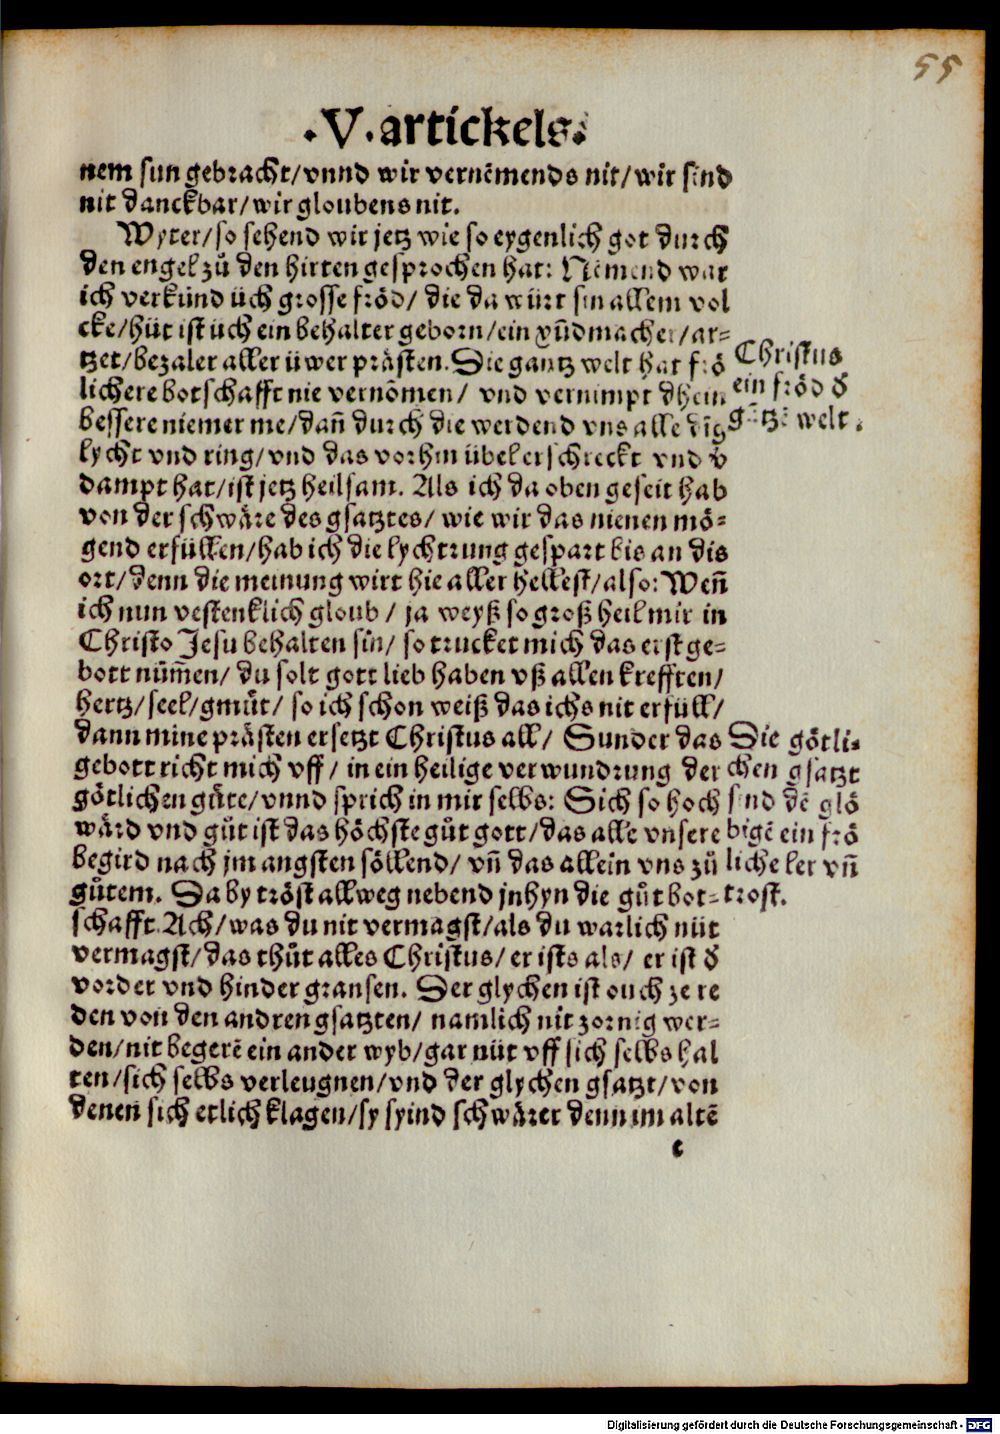 55
.V. artickels.
nem sun gebracht/vnnd wir vernēmends nit/wir sind
nit danckbar/wir gloubens nit.
Wyter/so sehend wir jetz wie so eygenlich got durch
den engel zů den hirten gesprochen hat: Nemend war
ich verkünd üch grosse fröd/ die da würt sin allem vol
cke/hüt ist üch ein behalter geborn/ein gsundmacher/ar-
tzet/bezaler aller üwer prästen. Die gantz welt hat frö
lichere botschafft nie vernōmen/ vnd vernimpt dhein
bessere niemer me/dañ durch die werdend vns alle ding
lycht vnd ring/vnd das vorhin übel erschreckt vnd v̄
dampt hat/ist jetz heilsam. Als ich da oben geseit hab
von der schwäre des gsatztes/ wie wir das nienen mö-
gend erfüllen/hab ich die lychtrung gespart bis an dis
ort/denn die meinung wirt hie aller hellest/also: Weñ
ich nun vestenklich gloub/ ja weyß so groß heil mir in
Christo Jesu behalten sin/ so trucket mich das erst ge-
bott nüm̄en/ du solt gott lieb haben vß allen krefften/
hertz/seel/gmüt/ so ich schon weiß das ichs nit erfüll/
dann mine prästen ersetzt Christus all/ Sunder das
gebott richt mich vff/ in ein heilige verwundrung der
götlichen güte/vnnd sprich in mir selbs: Sich so hoch
wärd vnd gůt ist das höchste gůt gott/das alle vnsere
begird nach jm angsten söllend/ vñ das allein vns zů
gůtem. Da by tröst allweg nebend jnhyn die gůt bot-
schafft. Ach/was du nit vermagst/als du warlich nüt
vermagst/das thůt alles Christus/er ists als/ er ist d̄
vorder vnd hinder gransen. Der glychen ist ouch ze re
den von den andren gsatzten/ namlich nit zornig wer-
den/nit begerē ein ander wyb/gar nüt vff sich selbs hal
ten/sich selbs verleugnen/vnd der glychen gsatzt/von
denen sich etlich klagen/sy syind schwärer denn im altē
c
Christus
ein fröd d̄
gātzē welt.
Die götli-
chen gsatzt
sind dē glö
bigē ein frö
liche ler vñ
trost.
Digitalisierung gefördert durch die Deutsche Forschungsgemeinschaft - DFG